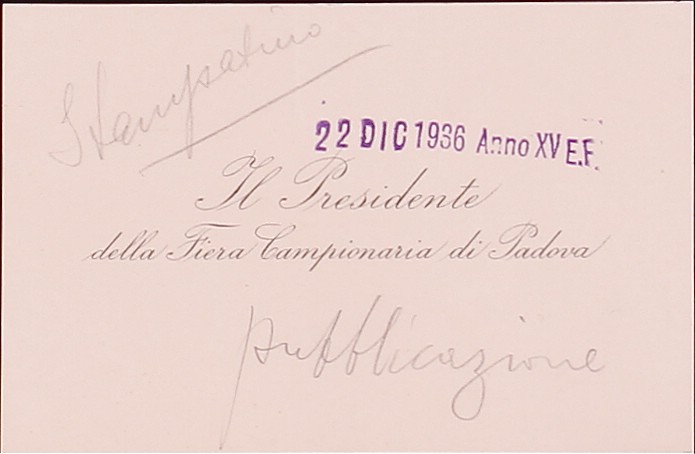 Stampatino
22 DIC 1936 Anno XV E.F.
Il Presidente
della Fiera Campionaria di Padova
pubblicazione